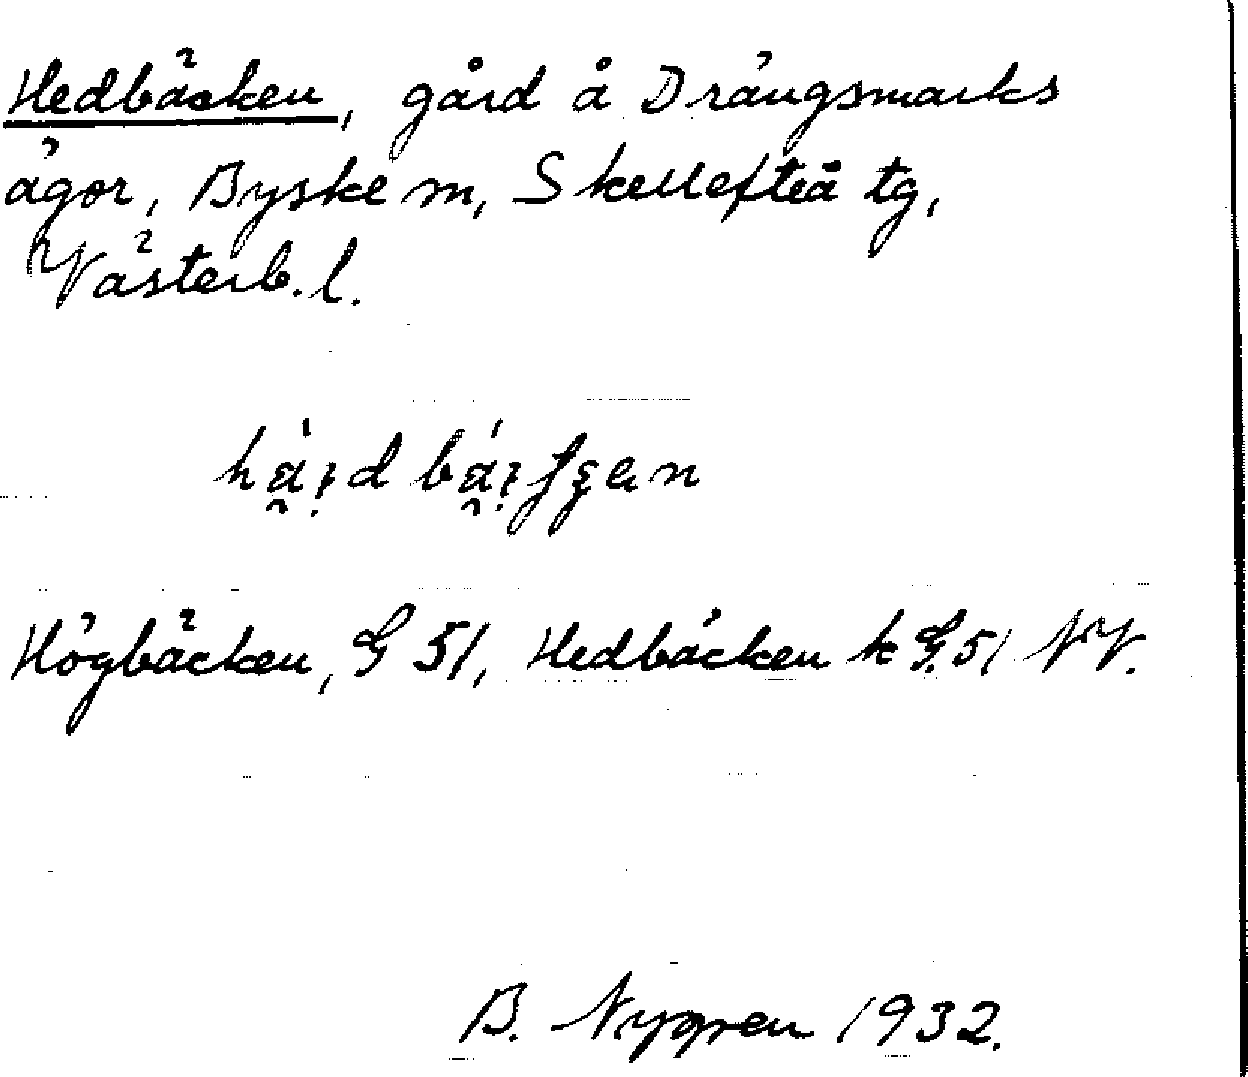 Hedbäcken, gård å Drängsmarks
ägor, Byske sn, Skellefteå tg,
Västerb. l.
Högbäcken, G 51, Hedbäcken k G. 51 NV.
B. Nygren 1932.